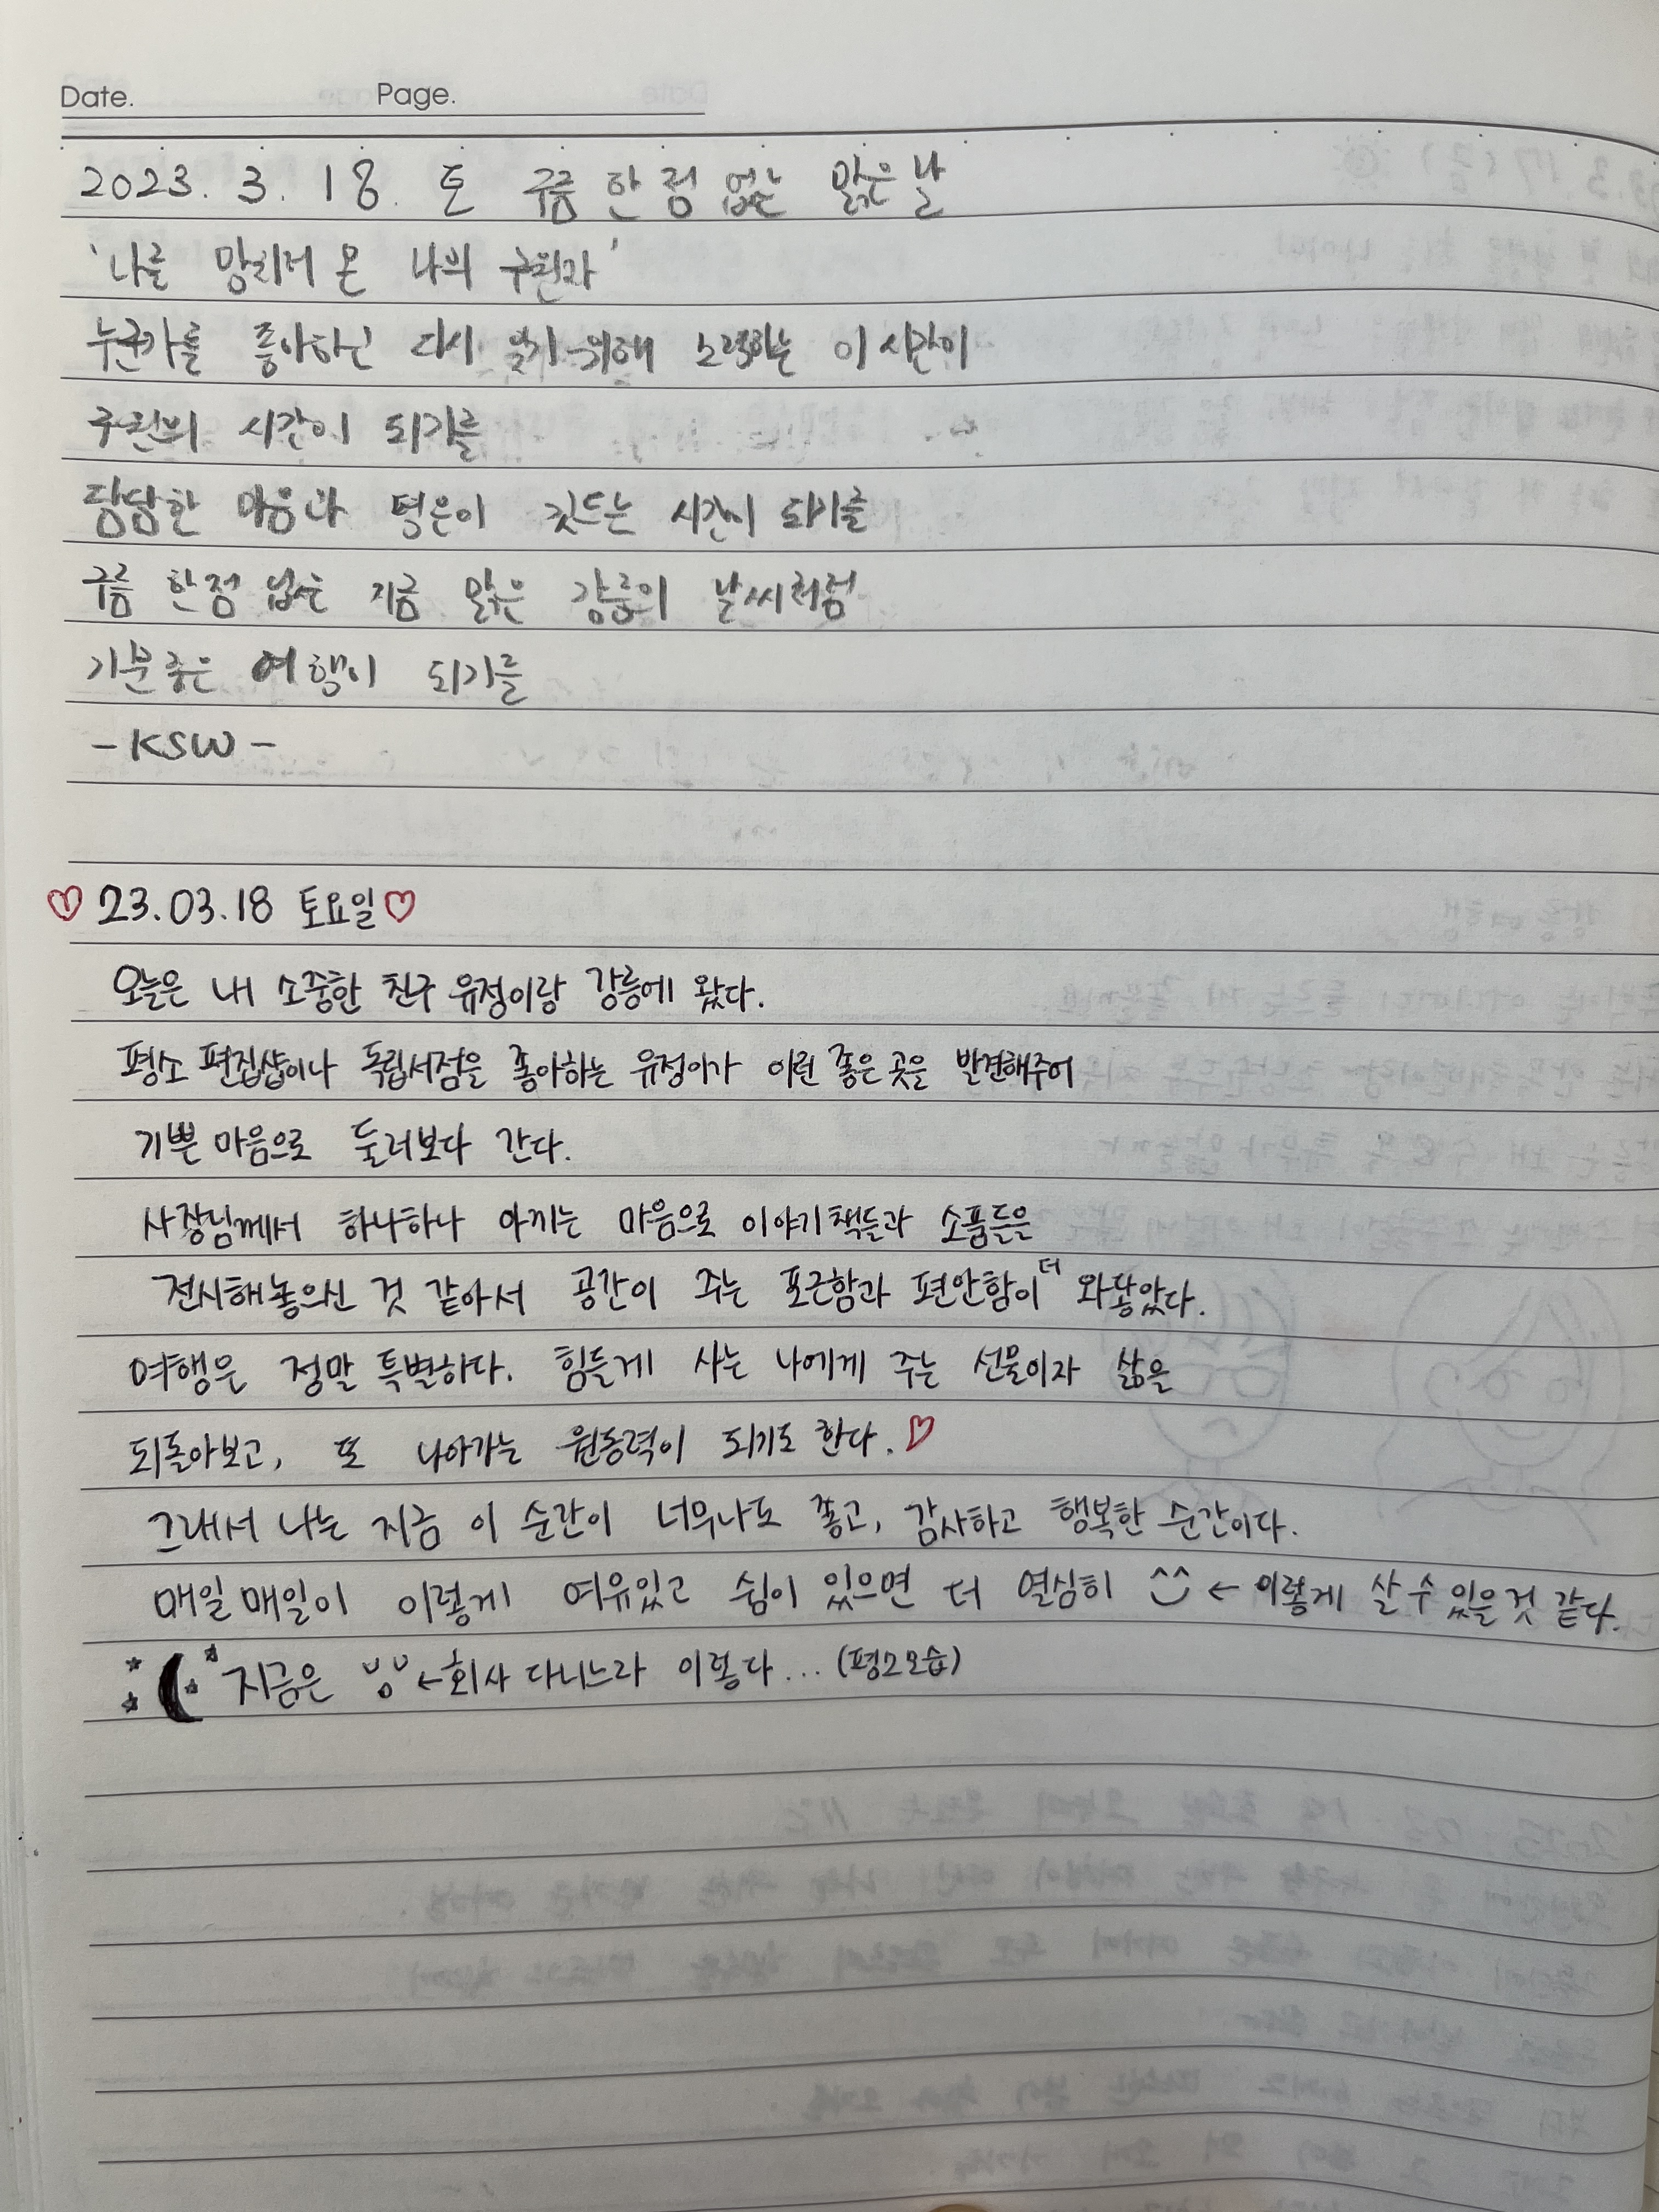 Date. Page.
2023. 3. 18. 토 구름 한 점 없는 맑은 날
'나를 망치러 온 나의 구원자'
누군가를 좋아하고 다시 잊기 위해 노력하는 이 시간이
구원의 시간이 되기를
담담한 마음과 평온이 깃드는 시간이 되기를
구름 한점 없는 지금 맑은 강릉의 날씨처럼
기분좋은 여행이 되기를
- KSW -
♡ 23.03.18 토요일 ♡
오늘은 내 소중한 친구 유정이랑 강릉에 왔다.
평소 편집샵이나 독립서점을 좋아하는 유정이가 이런 좋은 곳을 발견해주어
기쁜 마음으로 둘러보다 간다.
사장님께서 하나하나 아끼는 마음으로 이야기책들과 소품들을
전시해놓으신 것 같아서 공간이 주는 포근함과 편안함이 더 와닿았다.
여행은 정말 특별하다. 힘들게 사는 나에게 주는 선물이자 삶을
되돌아보고, 또 나아가는 원동력이 되기도 한다. ♡
그래서 나는 지금 이 순간이 너무나도 좋고, 감사하고 행복한 순간이다.
매일매일이 이렇게 여유있고 쉼이 있으면 더 열심히 ← 이렇게 살 수 있을 것 같다.
지금은 ← 회사 다니느라 이렇다... (평소모습)